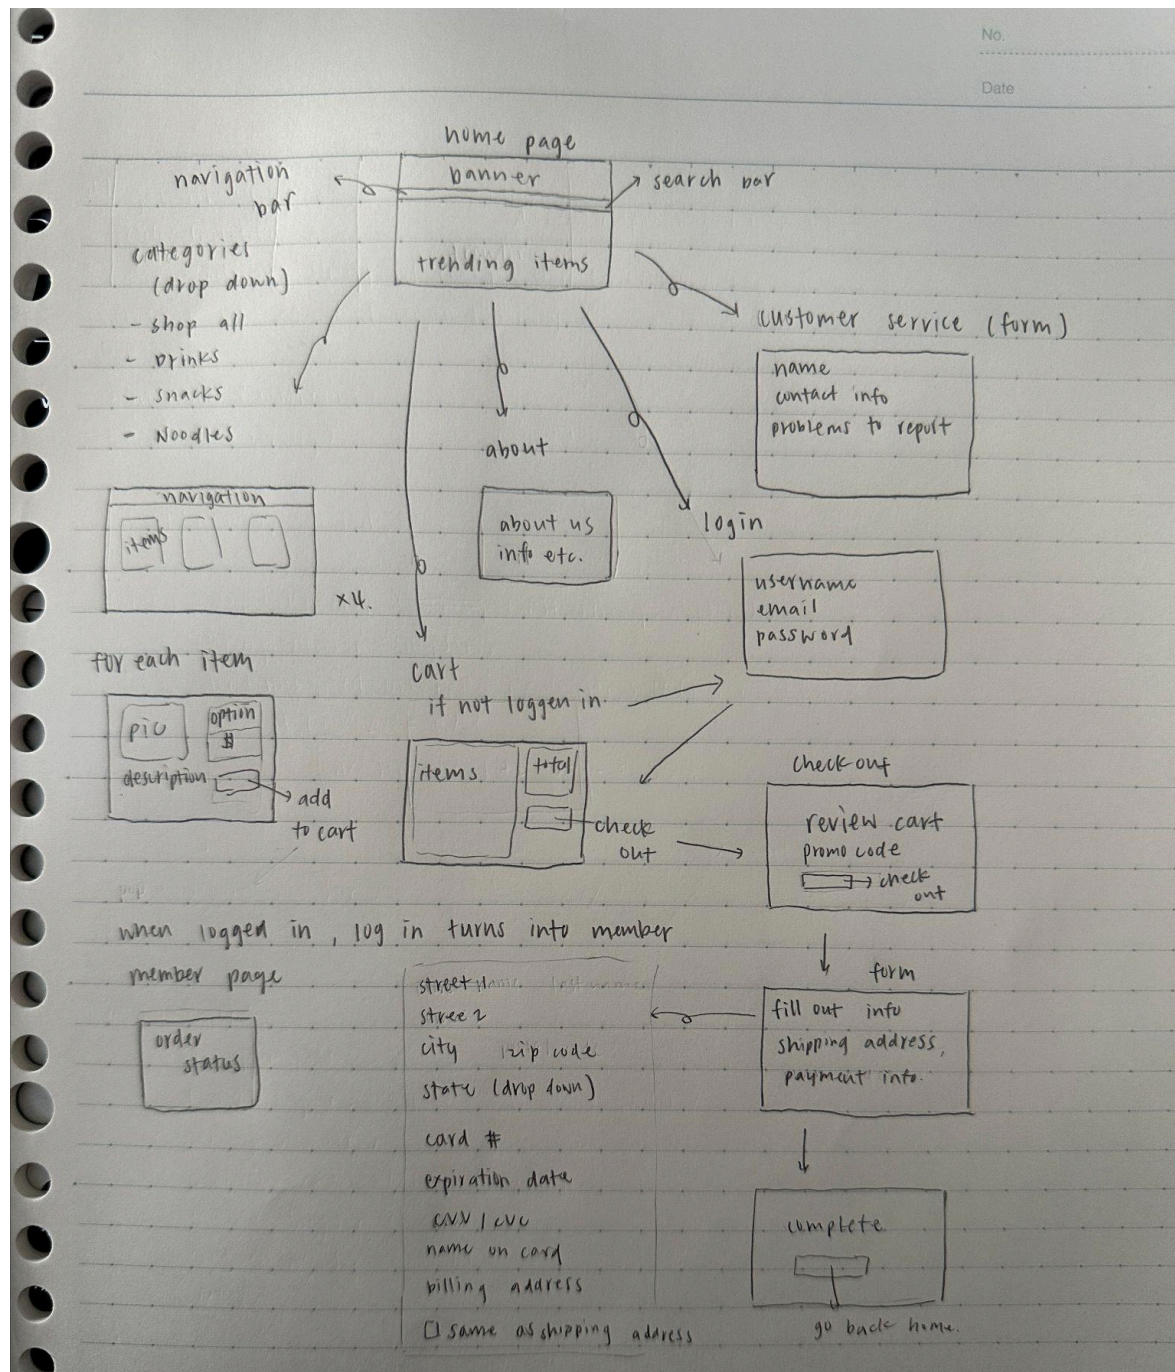 No.
Date
home page
banner
navigation
bar
search bar
trending items
categories
(drop down)
- shop all
- Drinks
- snacks
- Noodles
customer service (form)
name
contact info
problems to report
about
about us
info etc.
login
username
email
password
navigation
items
x4.
for each item
pic
option
$
description
add
to cart
cart
if not loggen in
items
total
check
out
check out
review cart
promo code
check
out
when logged in, log in turns into member
member page
order
status
form
fill out info
shipping address,
payment info.
street 1
stree 2
city zip code
state (drop down)
card #
expiration date
CVV / CVC
name on card
billing address
same as shipping address
complete
go back home.